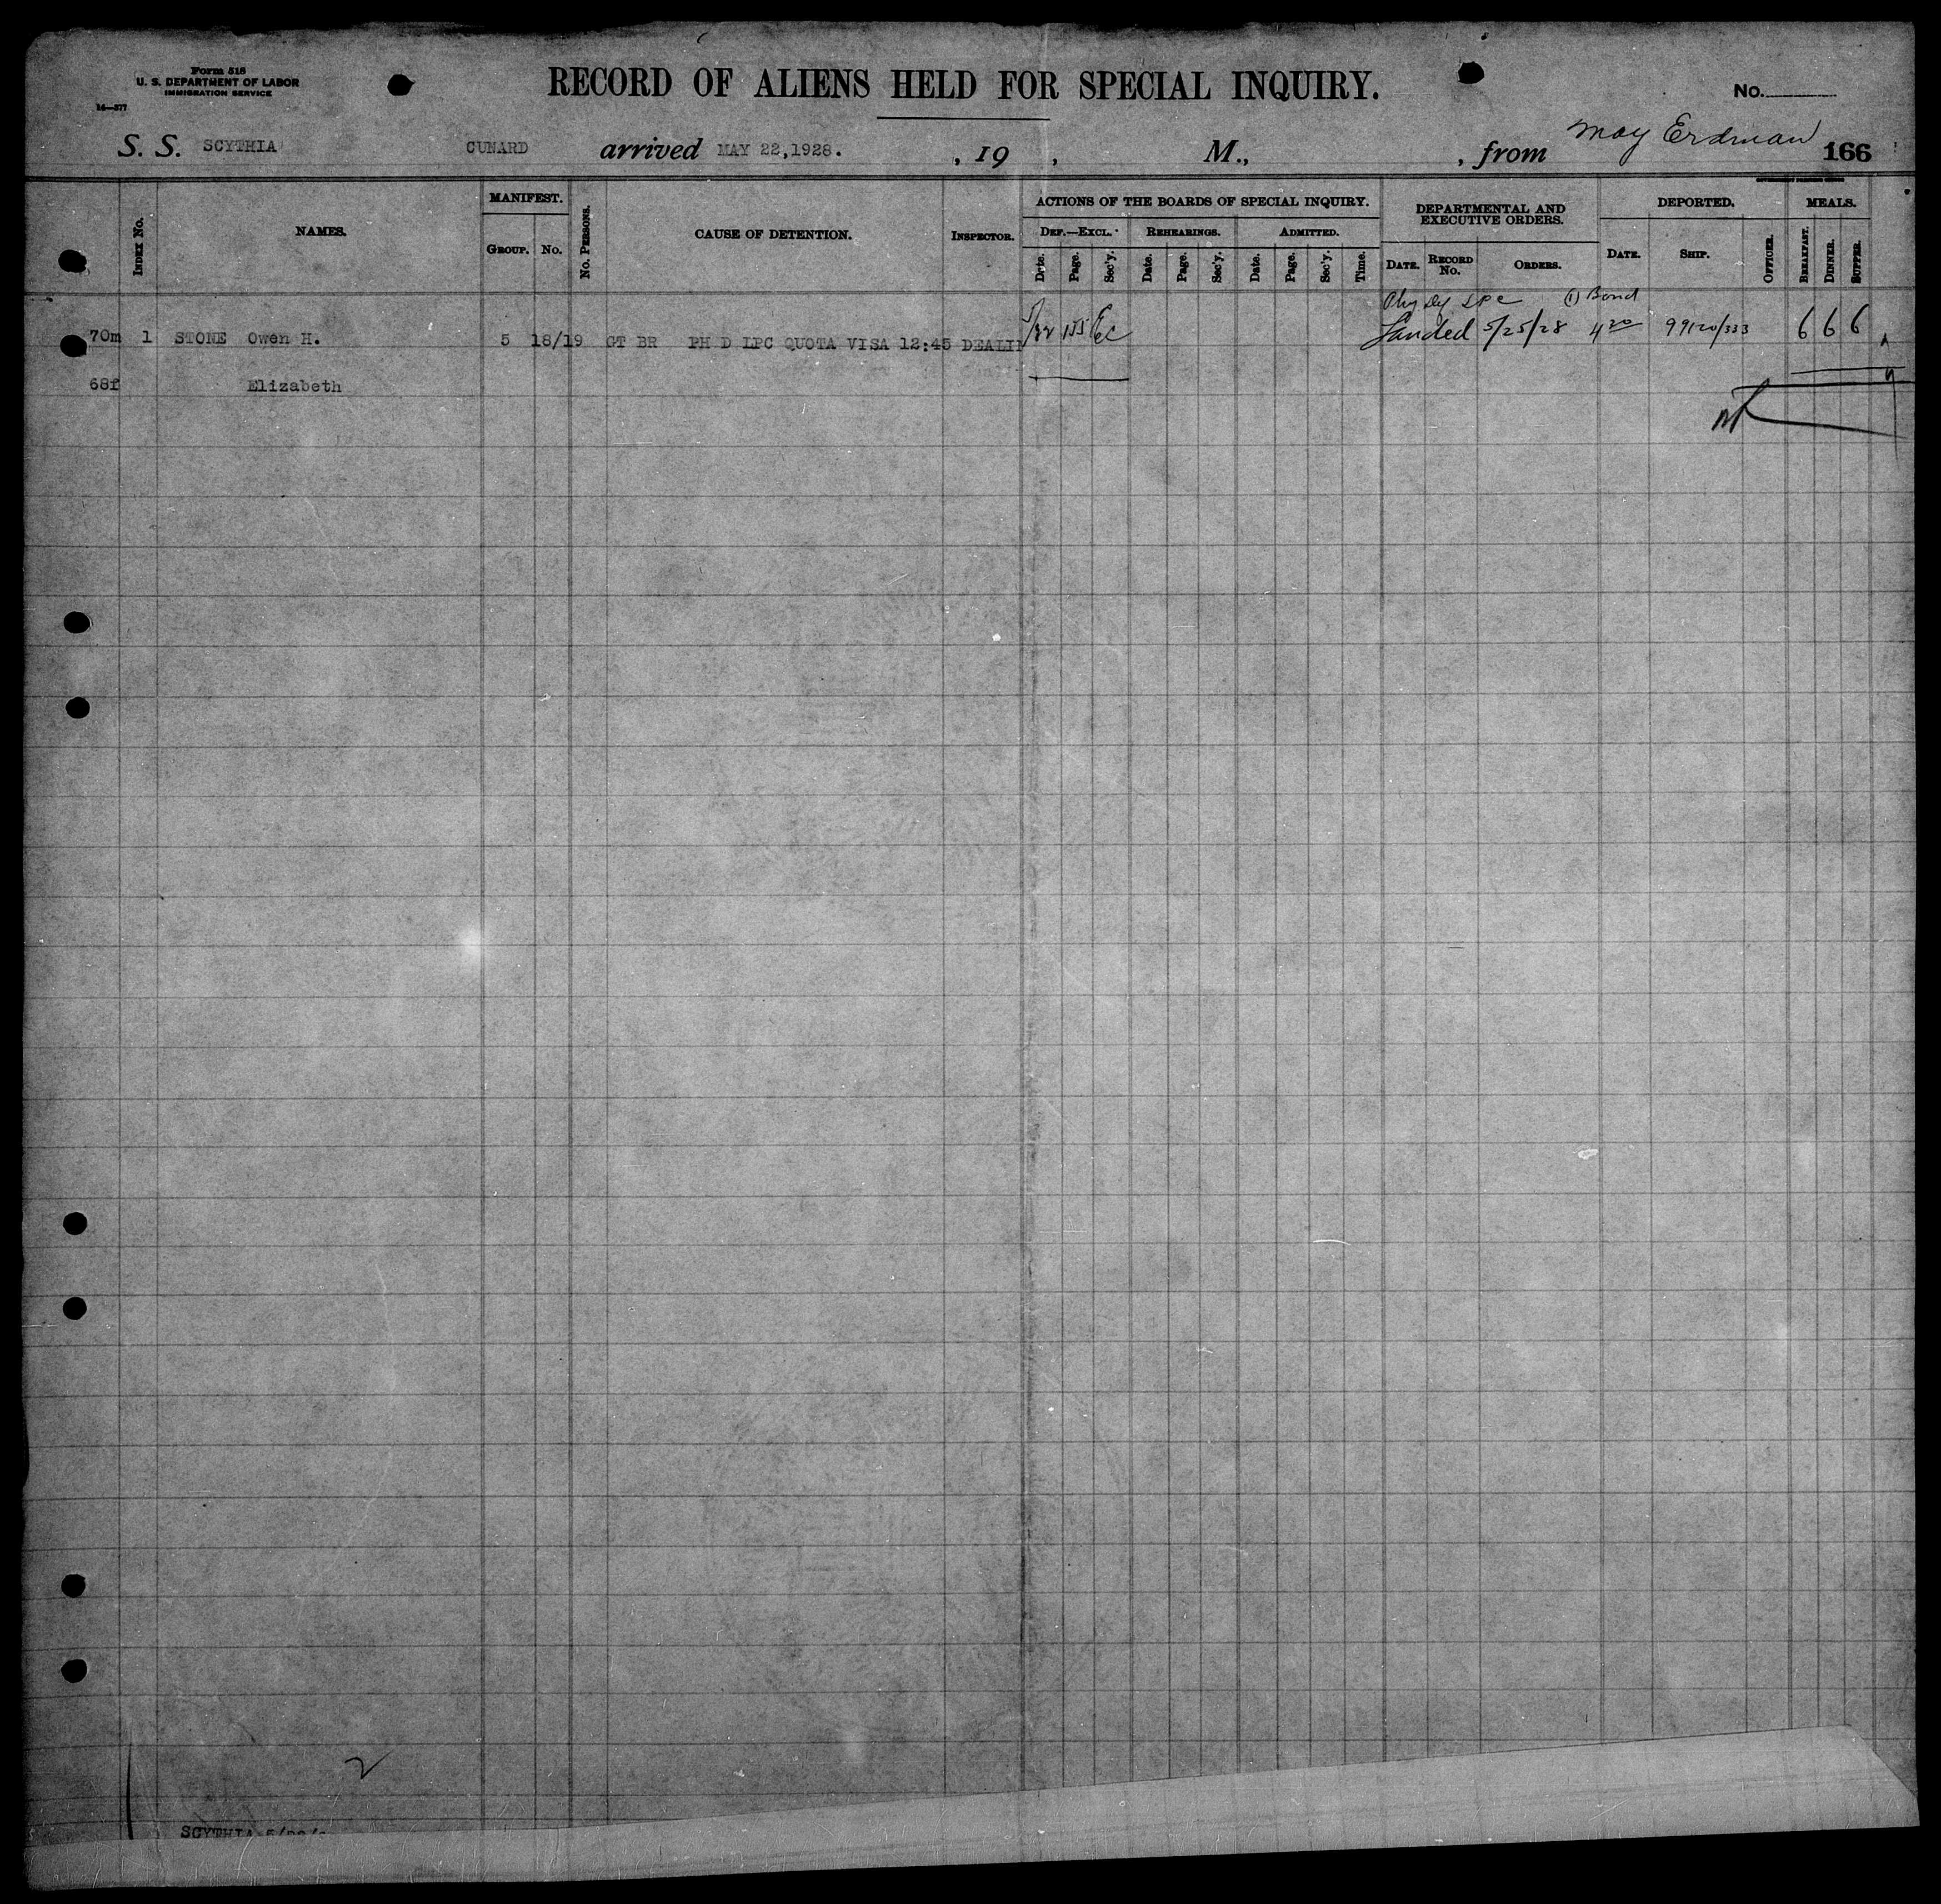 Form 518
U. S. DEPARTMENT OF LABOR
IMMIGRATION SERVICE
14—577
RECORD OF ALIENS HELD FOR SPECIAL INQUIRY.
No.
S. S. SCYTHIA CUNARD arrived MAY 22,1928. , 19 , M., , from May Erdman 166
INDEX NO.
NAMES.
MANIFEST.
GROUP. NO.
NO. PERSONS.
CAUSE OF DETENTION.
INSPECTOR.
ACTIONS OF THE BOARDS OF SPECIAL INQUIRY.
DEF.—EXCL. REHEARINGS. ADMITTED.
Date. Page. Sec'y. Date. Page. Sec'y. Date. Page. Sec'y. Time.
DEPARTMENTAL AND EXECUTIVE ORDERS.
DATE. RECORD NO. ORDERS.
DEPORTED.
DATE. SHIP. OFFICER.
MEALS.
BREAKFAST. DINNER. SUPPER.
Phy Df LPC (1) Bond
70m 1 STONE Owen H. 5 18/19 GT BR PH D LPC QUOTA VISA 12:45 DEALI 5/22 155 Landed 5/25/28 4 20 99120/333 6 6 6
68f Elizabeth
2
SCYTHIA